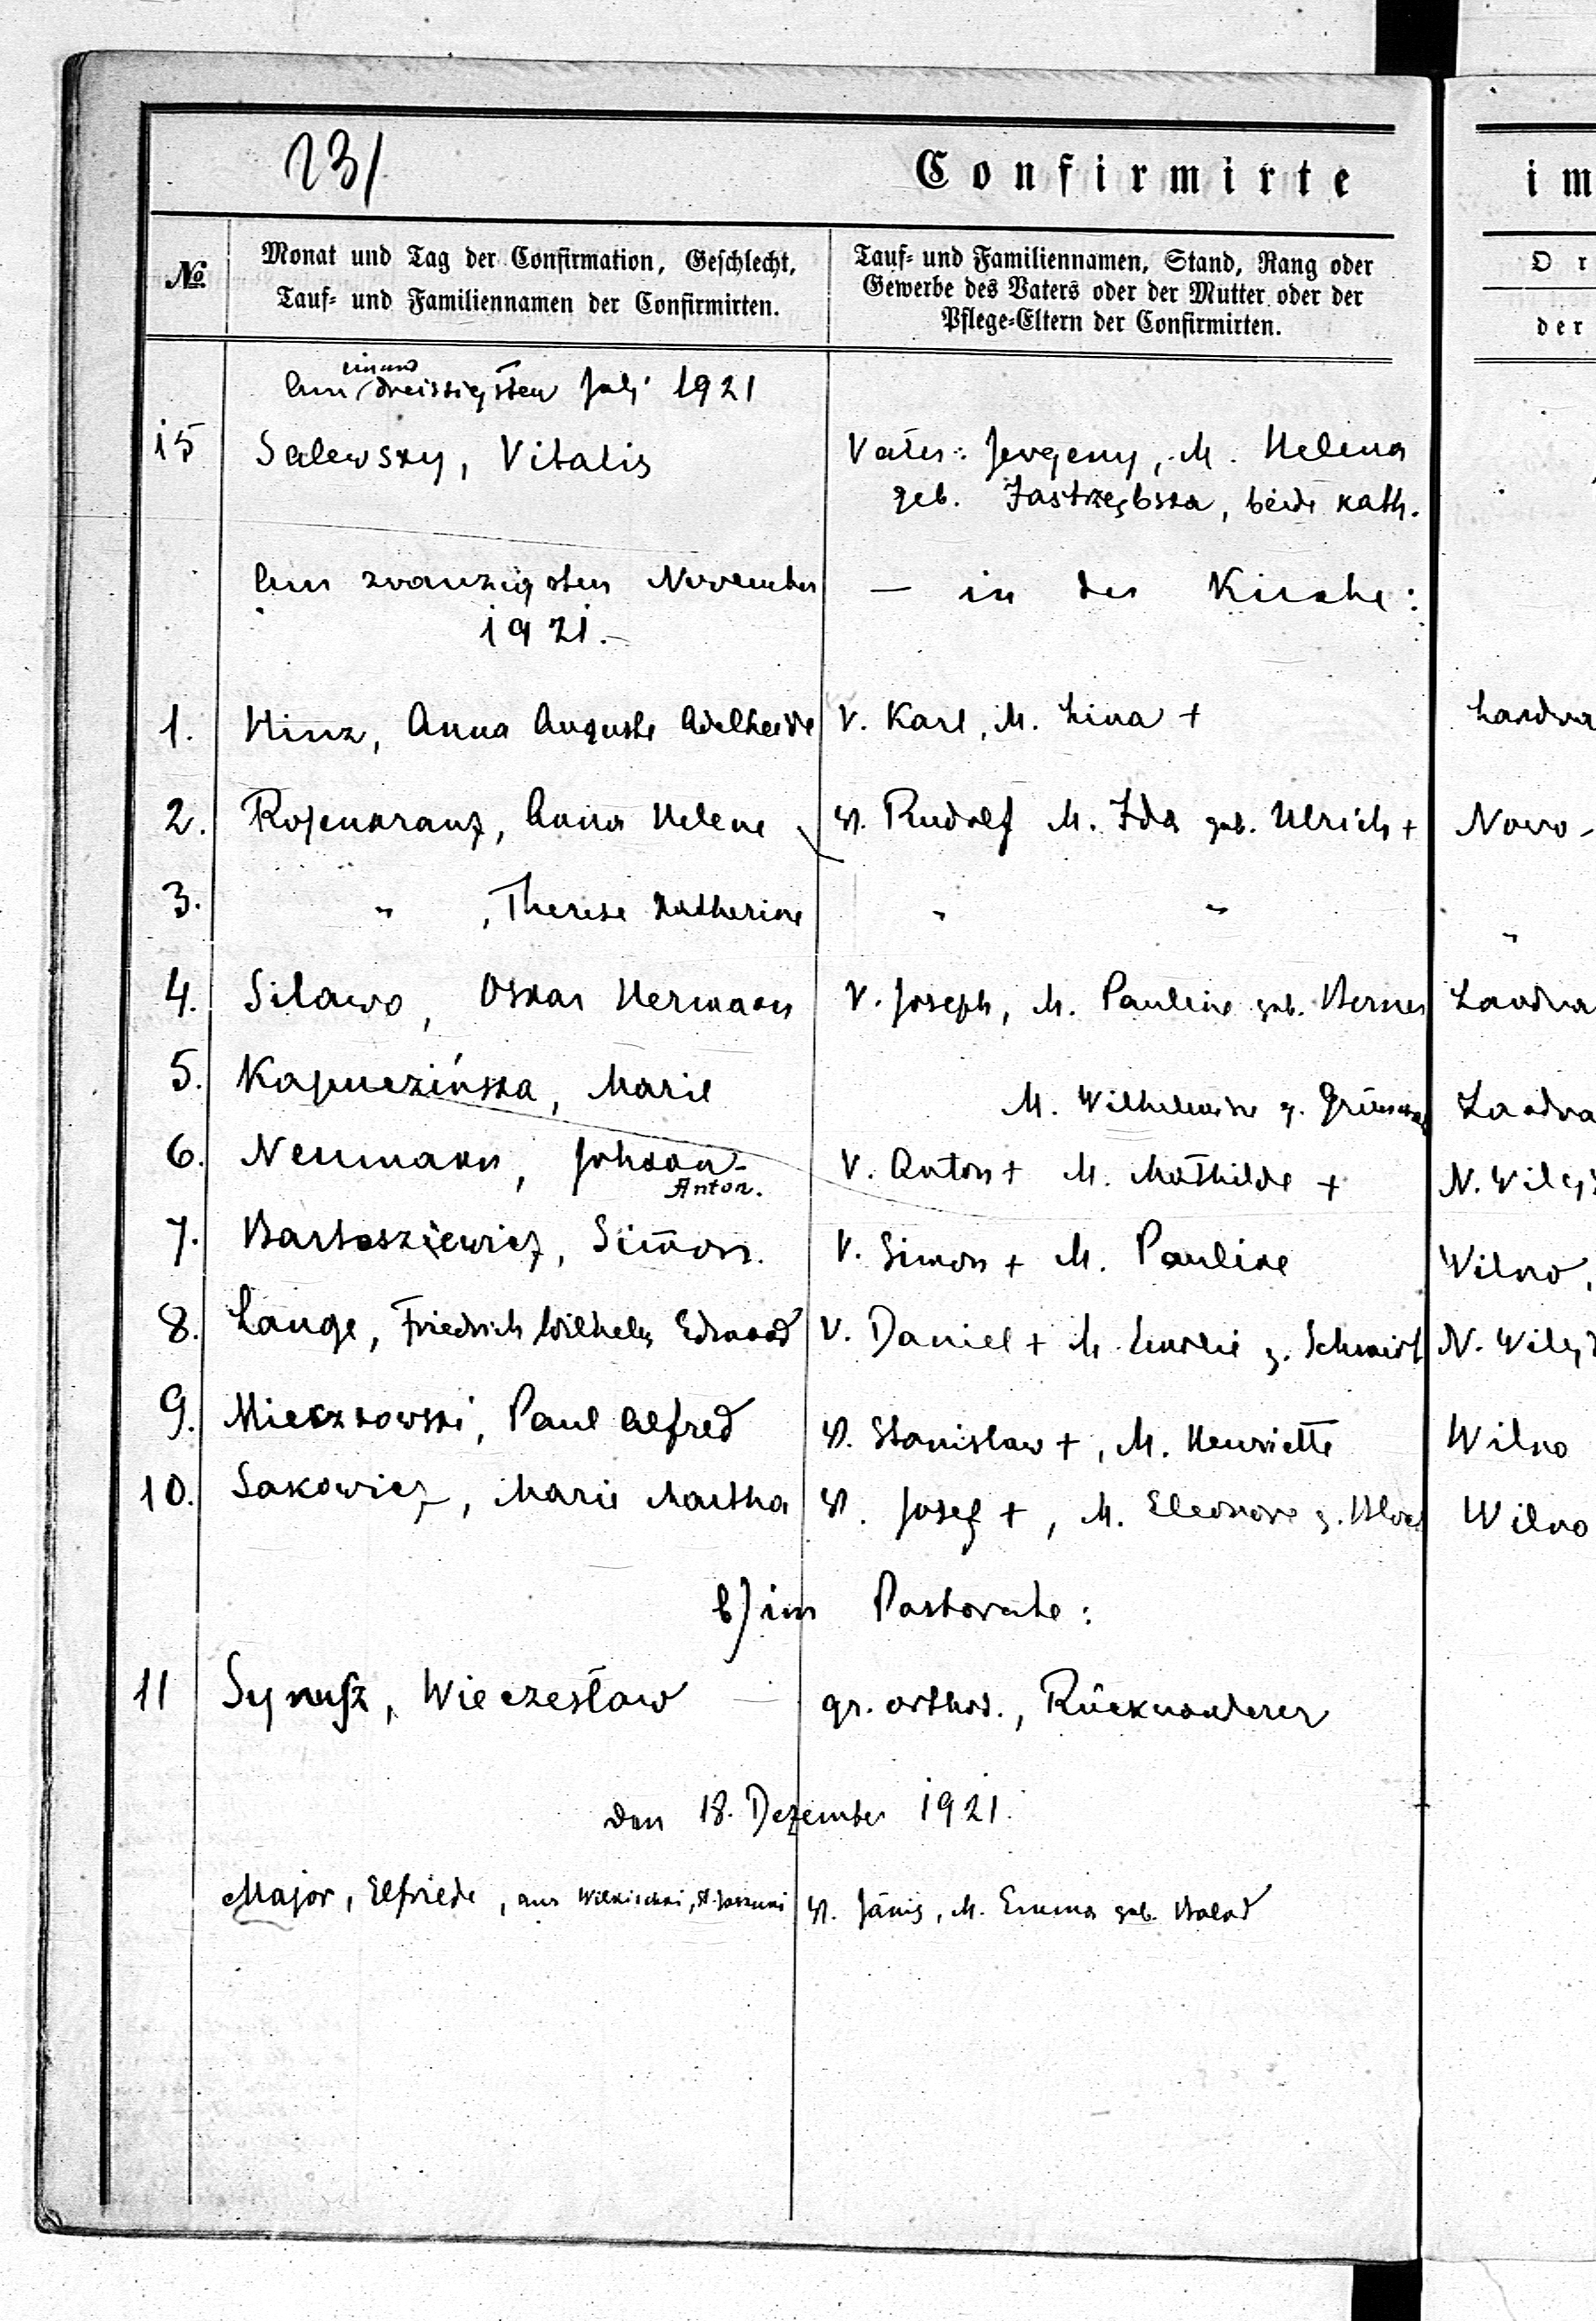 231
Confirmirte
im
№
Monat und Tag der Confirmation, Geschlecht,
Tauf- und Familiennamen der Confirmirten.
Tauf- und Familiennamen, Stand, Rang oder
Gewerbe des Vaters oder der Mutter oder der
Pflege-Eltern der Confirmirten.
Or
der
Am einunddreissigsten Juli 1921
15 Salewsky, Vitalis Vater: Jevgeny, M. Helena
geb. Jastrzębska, beide kath.
Am zwanzigsten November — in der Kirche:
1921.-
1. Hinz, Anna Auguste Adelheide V. Karl, M. Lina + Landwa
2. Rosenkranz, Anna Helene V. Rudolf M. Ida geb. Ulrich + Nowo-
3. " , Therese Katherine " " "
4. Silawo, Oskar Hermann V. Joseph, M. Pauline geb. Landwa
5. Kapuczińska, Marie M. Wilhelmine g. Landwa
6. Neumann, Johann- V. Anton + M. Mathilde + N. Wilej
Anton.
7. Bartoszewicz, Simon. V. Simon + M. Pauline Wilno,
8. Lange, Friedrich Wilhelm Edmund V. Daniel + M. g. Schmidt N. Wilej
9. Mieczkowski, Paul Alfred V. Stanislaw +, M. Henriette Wilno
10. Sakowicz, Marie Martha V. Josef +, M. Eleonore g. Wilno
b) im Pastorate:
11 Synusz, Wieczesław — gr. orthod., Rückwanderer
den 18. Dezember 1921.
Major, Elfriede, aus V. Jānis, M. Emma geb.